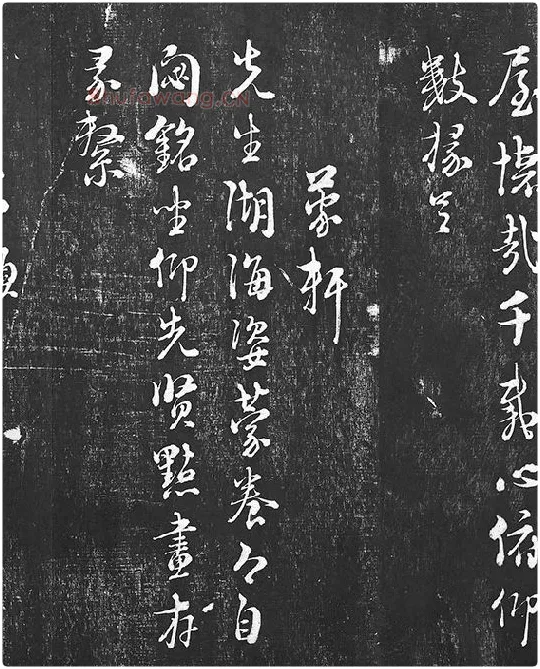 屋懷哉千載心俯仰
數椽足
蒙軒
先生湖海姿蒙養今自
閟銘坐仰先賢點畫存
彖繫
shufawang.CN